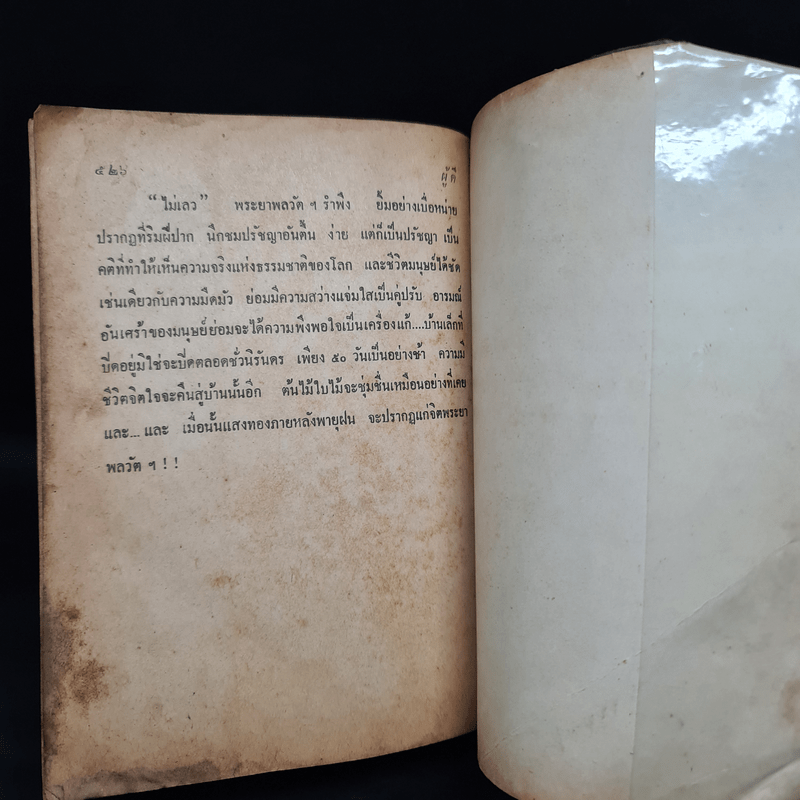 ๕๒๖ ผู้ดี
“ไม่เลว” พระยาพลวัต ฯ รำพึง ยิ้มอย่างเบื่อหน่าย
ปรากฏที่ริมฝีปาก นึกชมปรัชญาอันตื้น ง่าย แต่ก็เป็นปรัชญา เป็น
คติที่ทำให้เห็นความจริงแห่งธรรมชาติของโลก และชีวิตมนุษย์ได้ชัด
เช่นเดียวกับความมืดมัว ย่อมมีความสว่างแจ่มใสเป็นคู่ปรับ อารมณ์
อันเศร้าของมนุษย์ย่อมจะได้ความพึงพอใจเป็นเครื่องแก้....บ้านเล็กที่
ปิดอยู่มิใช่จะปิดตลอดชั่วนิรันดร เพียง ๕๐ วันเป็นอย่างช้า ความมี
ชีวิตจิตใจจะคืนสู่บ้านนั้นอีก ต้นไม้ใบไม้จะชุ่มชื่นเหมือนอย่างที่เคย
และ... และ เมื่อนั้นแสงทองภายหลังพายุฝน จะปรากฏแก่จิตพระยา
พลวัต ฯ ! !